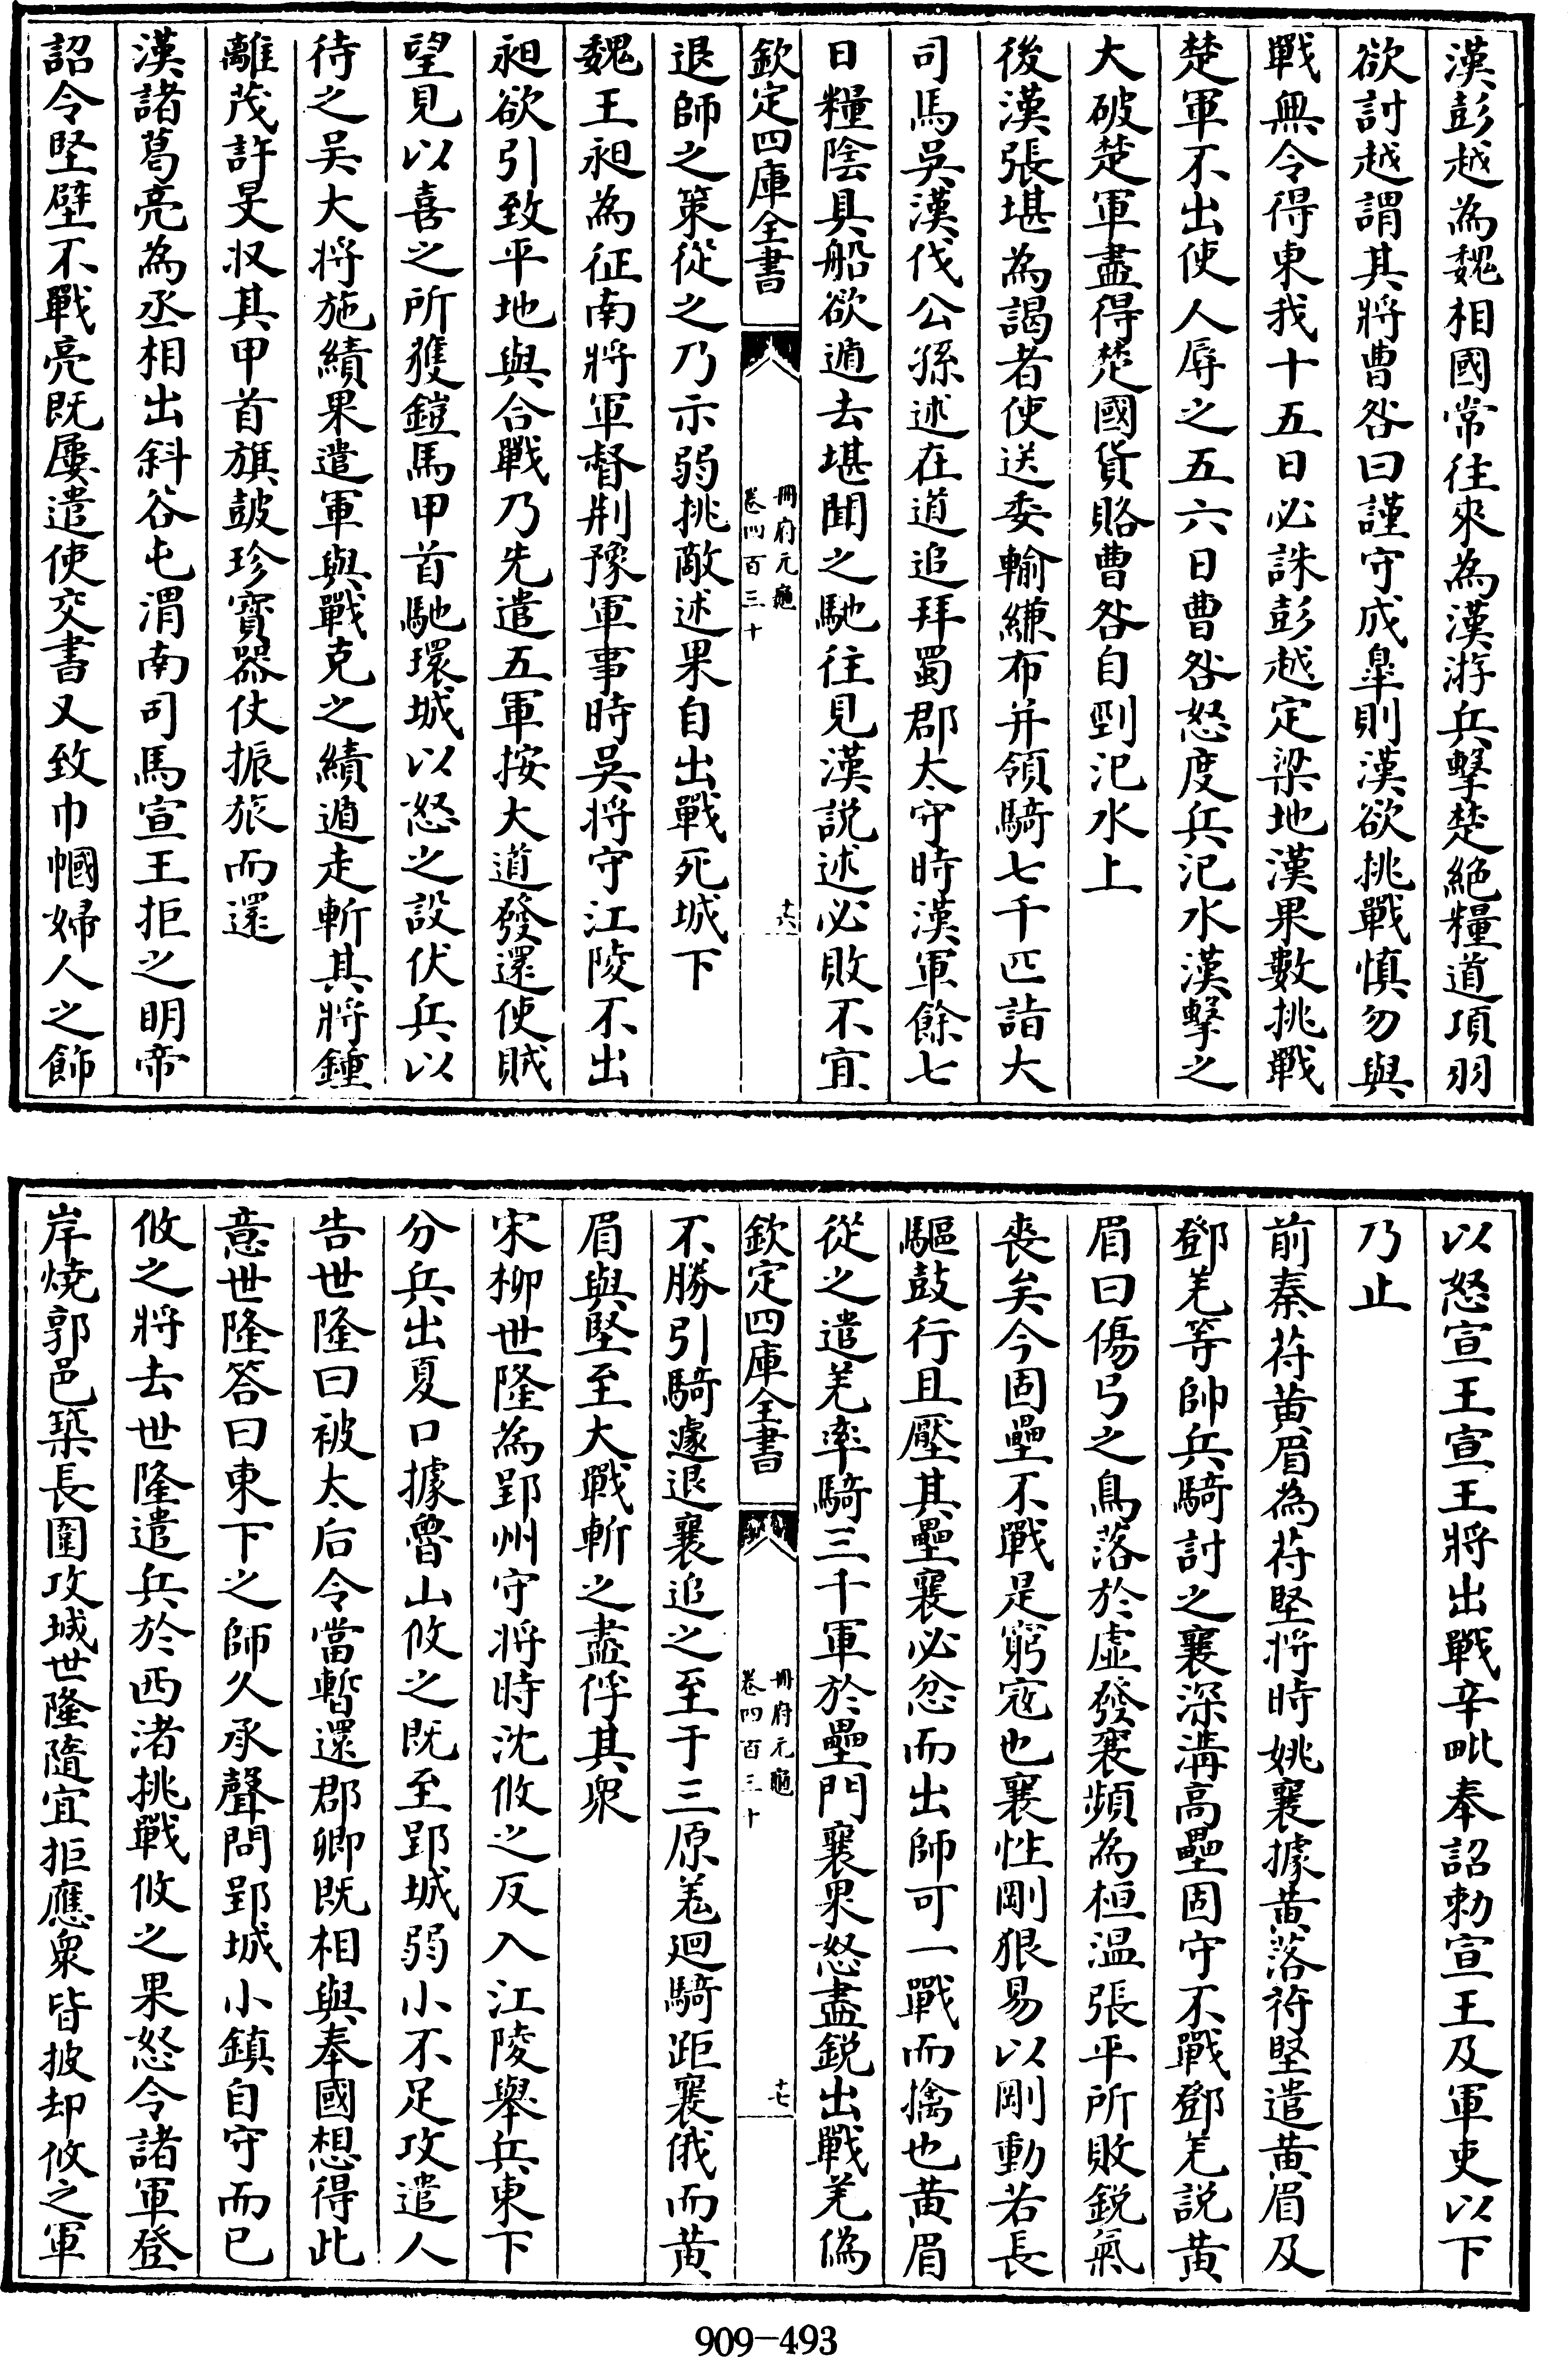 漢彭越為魏相國常往來為漢游兵擊楚絶糧道項羽
欲討越謂其將曹咎曰謹守成皐則漢欲挑戰慎勿與
戰無令得東我十五日必誅彭越定梁地漢果數挑戰
楚軍不出使人辱之五六日曹咎怒度兵汜水漢擊之
大破楚軍盡得楚國貨賂曹咎自剄汜水上
後漢張堪為謁者使送委輸縑布并領騎七千匹詣大
司馬吳漢伐公孫述在道追拜蜀郡太守時漢軍餘七
日糧陰具船欲遁去堪聞之馳往見漢説述必敗不宜
欽定四庫全書
冊府元龜
卷四百三十
十六
退師之策從之乃示弱挑敵述果自出戰死城下
魏王昶為征南將軍督荆豫軍事時吳將守江陵不出
昶欲引致平地與合戰乃先遣五軍按大道發還使賊
望見以喜之所獲鎧馬甲首馳環城以怒之設伏兵以
待之吴大將施績果遣軍與戰克之績遁走斬其將鍾
離茂許旻収其甲首旗鼓珍寳器仗振旅而還
漢諸葛亮為丞相出斜谷屯渭南司馬宣王拒之明帝
詔令堅壁不戰亮既屢遣使交書又致巾幗婦人之飾
以怒宣王宣王將出戰辛毗奉詔勅宣王及軍吏以下
乃止
前秦苻黄眉為苻堅將時姚襄據黄落苻堅遣黄眉及
鄧羌等帥兵騎討之襄深溝高壘固守不戰鄧羌説黄
眉曰傷弓之鳥落於虚發襄頻為桓温張平所敗鋭氣
喪矣今固壘不戰是窮寇也襄性剛狠易以剛動若長
驅鼓行且壓其壘襄必忿而出師可一戰而擒也黄眉
從之遣羌率騎三千軍於壘門襄果怒盡鋭出戰羌偽
欽定四庫全書
冊府元龜
卷四百三十
十七
不勝引騎遽退襄追之至于三原羌廻騎距襄俄而黄
眉與堅至大戰斬之盡俘其衆
宋柳世隆為郢州守將時沈攸之反入江陵舉兵東下
分兵出夏口據魯山攸之既至郢城弱小不足攻遣人
告世隆曰被太后令當暫還郡卿既相與奉國想得此
意世隆答曰東下之師久承聲問郢城小鎮自守而已
攸之將去世隆遣兵於西渚挑戰攸之果怒令諸軍登
岸燒郭邑築長圍攻城世隆隨宜拒應衆皆披却攸之軍
909-493